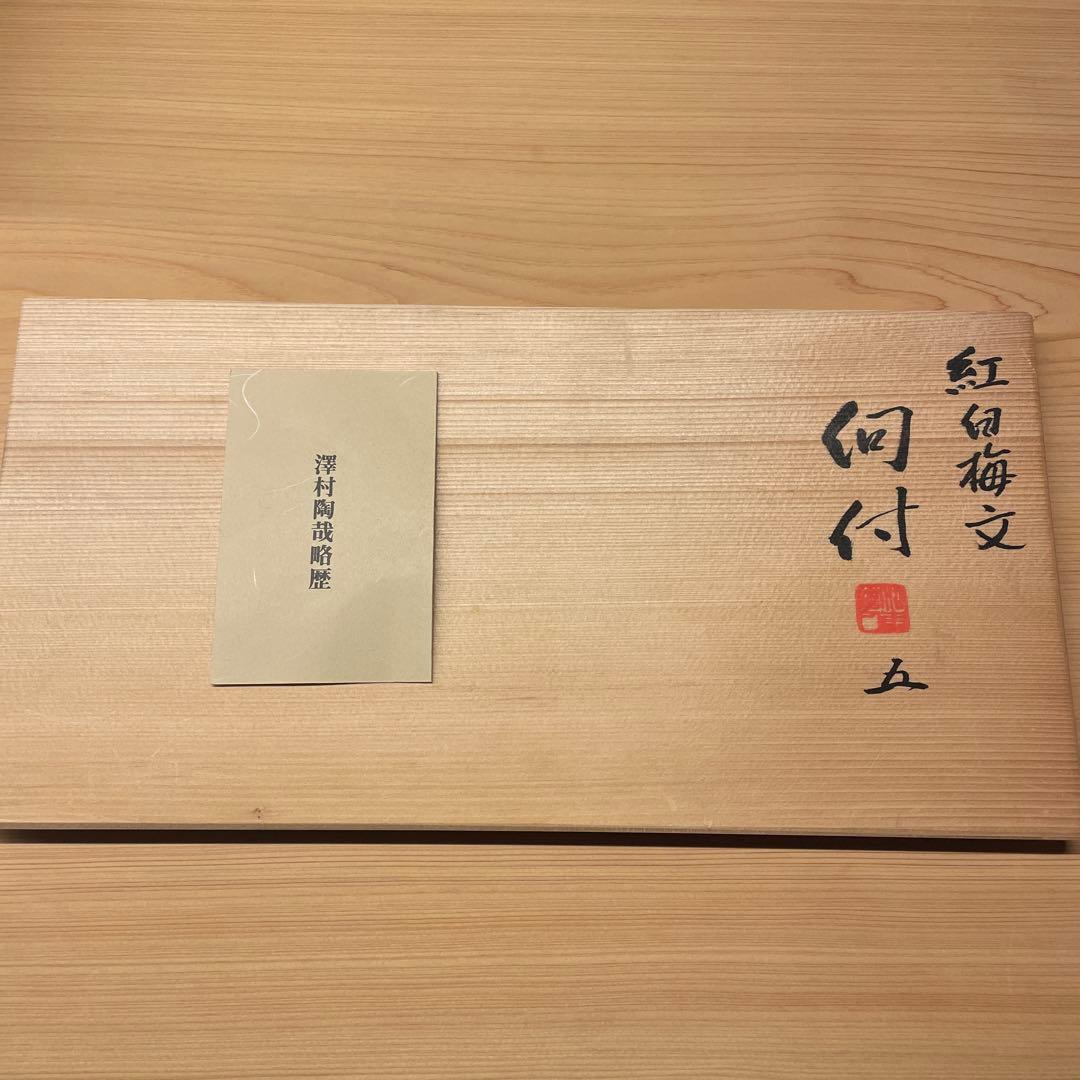 紅白梅文
向付
五
澤村陶哉略歴